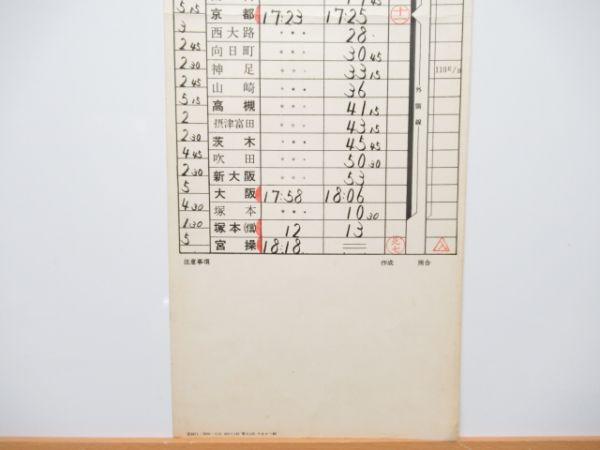 5 15 京都 17:23 17:25 十一
3 西大路 ・・・ 28
2 45 向日町 ・・・ 30 45
2 30 神足 ・・・ 33 15
2 45 山崎 ・・・ 36
5 15 高槻 ・・・ 41 15
2 摂津富田 ・・・ 43 15
2 30 茨木 ・・・ 45 45
4 45 吹田 ・・・ 50 30
2 30 新大阪 ・・・ 53
5 大阪 17:58 18:06
4 30 塚本 ・・・ 10 30
1 30 塚本(信) 12 13
5 宮操 18:18
外側線
注意事項 作成 照合